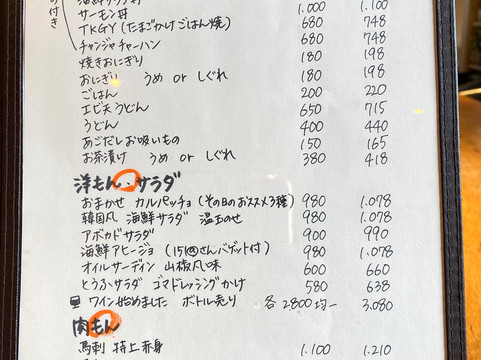 の付き
サーモン丼 1.000 1.100
TKGY (たまごかけごはん焼) 680 748
チャンジャチャーハン 680 748
焼きおにぎり 180 198
おにぎり うめ or しぐれ 180 198
ごはん 200 220
エビ天うどん 650 715
うどん 400 440
あごだしお吸いもの 150 165
お茶漬け うめ or しぐれ 380 418
洋もん・サラダ
おまかせ カルパッチョ (その日のおススメ3種) 980 1.078
韓国風 海鮮サラダ 温玉のせ 980 1.078
アボカドサラダ 900 990
海鮮アヒージョ (151さんバゲット付) 980 1.078
オイルサーディン 山椒風味 600 660
とうふサラダ ゴマドレッシングかけ 580 638
ワイン始めました ボトル売り 各2.800均一 3.080
肉もん
馬刺 特上赤身 1.100 1.210